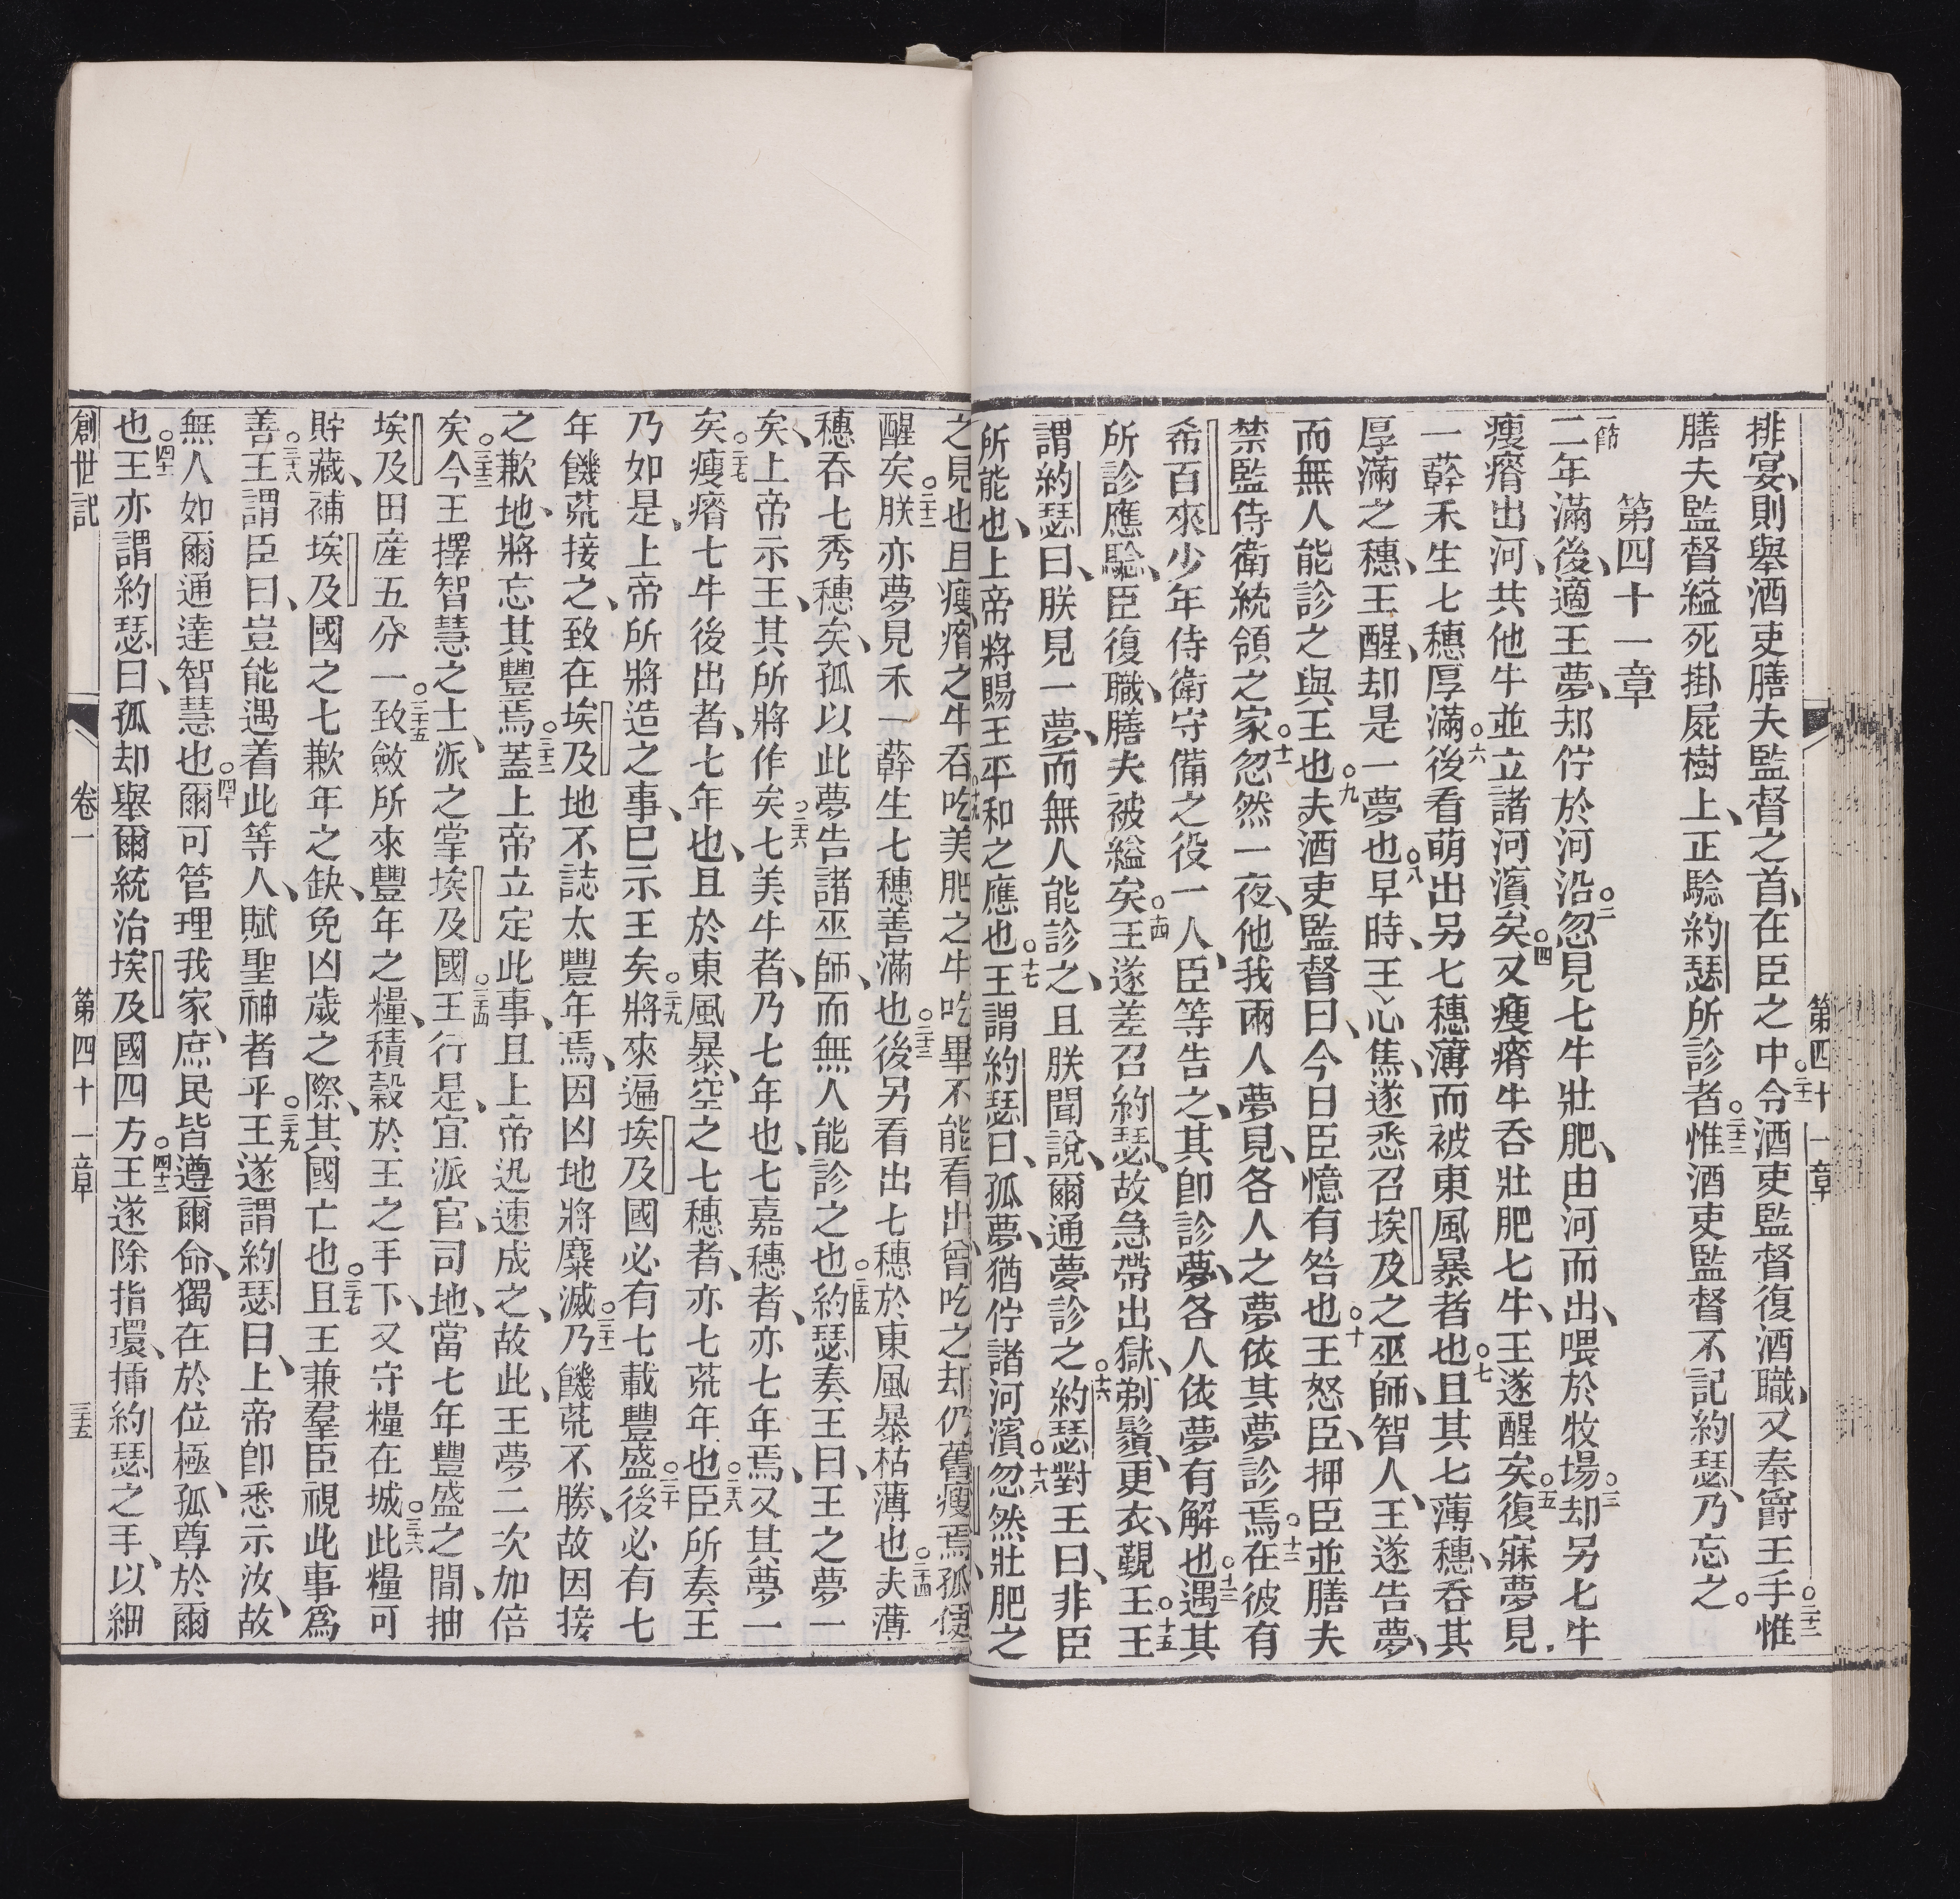 第四十一章
排宴、則舉酒吏膳夫監督之首、在臣之中○二十一令酒吏監督復酒職、又奉爵王手○二十二惟
膳夫監督縊死掛屍樹上、正騐約瑟所診者○二十三惟酒吏監督不記約瑟、乃忘之○
第四十一章
一節二年滿後、適王夢、却佇於河沿○二忽見七牛壯肥、由河而出、喂於牧場○三却另七牛
瘦瘠出河、共他牛並立諸河濱矣○四又瘦瘠牛吞壯肥七牛、王遂醒矣○五復寐夢見、
一蕣禾生七穗厚滿○六後看萌出另七穗薄而被東風暴者也○七且其七薄穗、吞其
厚滿之穗、王醒、却是一夢也○八早時、王心焦、遂悉召埃及之巫師、智人、王遂告夢、
而無人能診之與王也○九夫酒吏監督曰、今日臣憶有咎也○十王怒臣、押臣並膳夫
禁監侍衛統領之家○十一忽然一夜、他我兩人夢見、各人之夢依其夢診焉○十二在彼有
希百來少年侍衛守備之役一人、臣等告之、其卽診夢、各人依夢有解也○十三遇其
所診應騐、臣復職、膳夫被縊矣○十四王遂差召約瑟、故急帶出獄、剃鬚、更衣、覲王○十五王
謂約瑟曰、朕見一夢、而無人能診之、且朕聞說、爾通夢診之○十六約瑟對王曰、非臣
所能也、上帝將賜王平和之應也○十七王謂約瑟曰、孤夢、猶佇諸河濱○十八忽然壯肥之
之見也且瘦瘠之牛吞吃美肥之牛吃畢不能看出、曾吃之却仍舊瘦焉、孤便
醒矣○二十二朕亦夢見禾一蕣生七穗善滿也○二十三後另看出七穗於東風暴枯薄也○二十四夫薄
穗吞七秀穗矣、孤以此夢告諸巫師、而無人能診之也○二十五約瑟奏王曰、王之夢一
矣、上帝示王、其所將作矣○二十六七美牛者、乃七年也、七嘉穗者、亦七年焉、又其夢一
矣○二十七瘦瘠七牛後出者、七年也、且於東風暴、空之七穗者、亦七荒年也○二十八臣所奏王
乃如是、上帝所將造之事、已示王矣○二十九將來遍埃及國必有七載豐盛○三十後必有七
年饑荒接之、致在埃及地不誌太豐年焉、因凶地將糜滅○三十一乃饑荒不勝、故因接
之歉、地將忘其豐焉○三十二蓋上帝立定此事、且上帝迅速成之、故此、王夢二次加倍
矣○三十三今王擇智慧之士、派之掌埃及國○三十四王行是、宜派官、司地、當七年豐盛之間、抽
埃及田産五分一致○三十五斂所來豐年之糧、積穀於王之手下、又守糧在城○三十六此糧可
貯藏、補埃及國之七歉年之缺、免凶歲之際、其國亡也○三十七且王兼羣臣視此事爲
善○三十八王謂臣曰、豈能遇着此等人、賦聖神者乎○三十九王遂謂約瑟曰、上帝卽悉示汝、故
無人如爾通達智慧也○四十爾可管理我家、庶民皆遵爾命、獨在於位極、孤尊於爾
也○四十一王亦謂約瑟曰、孤却舉爾統治埃及國四方○四十二王遂除指環、揷約瑟之手、以細
創世記 卷一 第四十一章 三十五